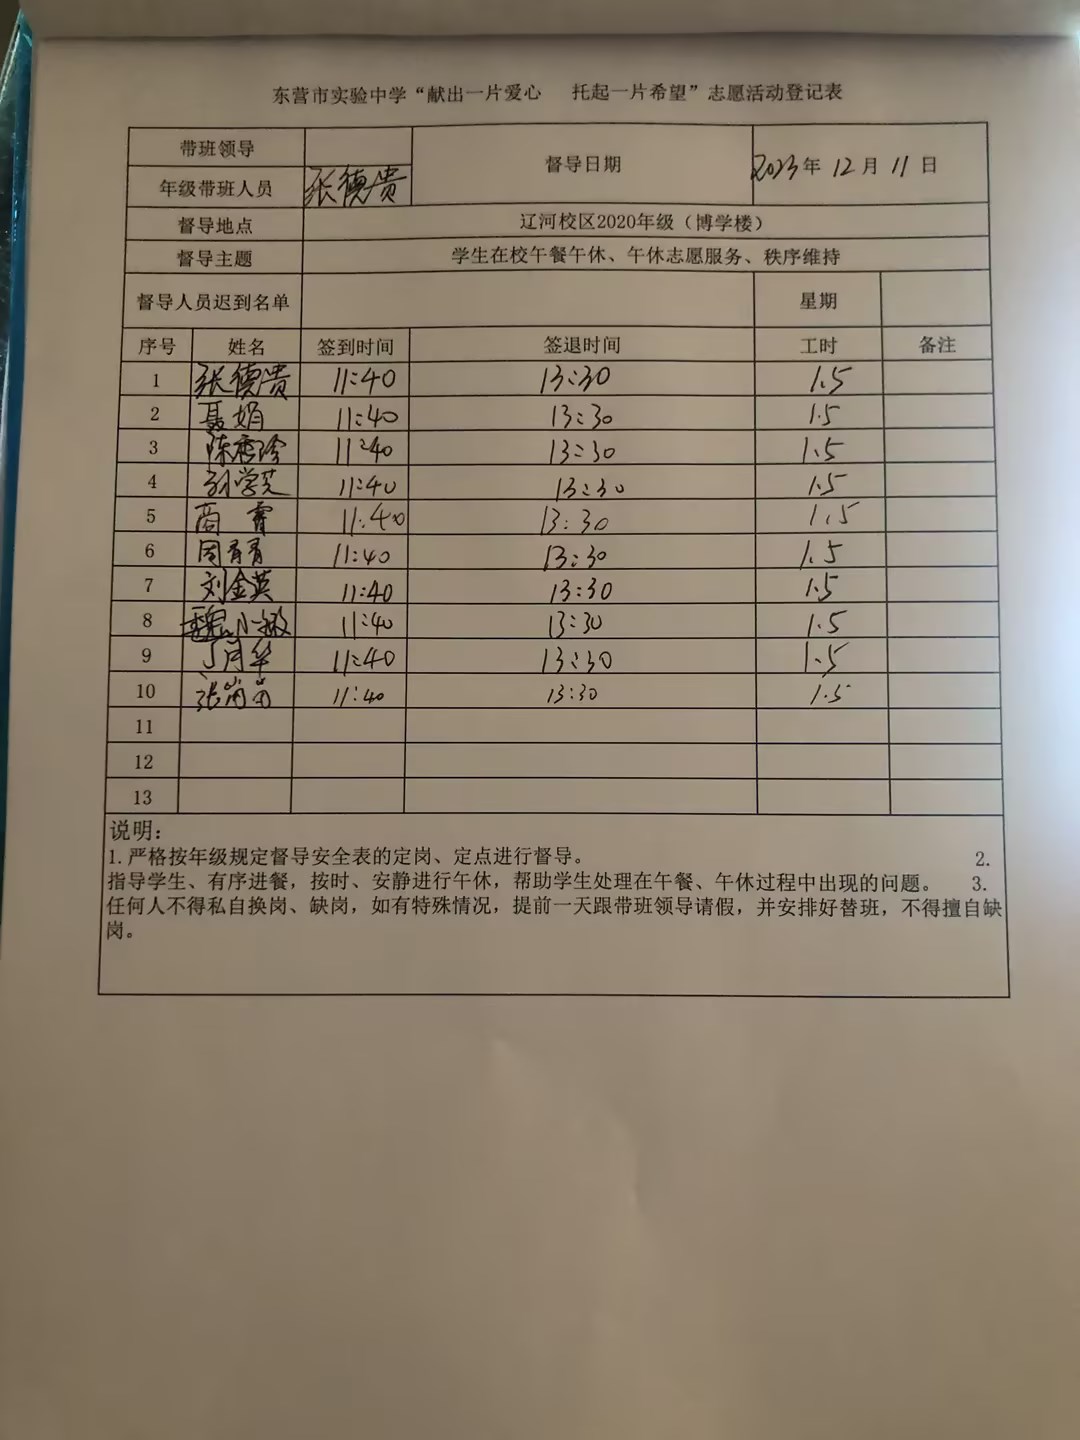 东营市实验中学“献出一片爱心 托起一片希望”志愿活动登记表
带班领导
年级带班人员 张德贵
督导日期 2023年 12月 11日
督导地点 辽河校区2020年级（博学楼）
督导主题 学生在校午餐午休、午休志愿服务、秩序维持
督导人员迟到名单 星期
序号 姓名 签到时间 签退时间 工时 备注
1 张德贵 11:40 13:30 1.5
2 聂娟 11:40 13:30 1.5
3 陈秀珍 11:40 13:30 1.5
4 孙学芝 11:40 13:30 1.5
5 商霄 11:40 13:30 1.5
6 周青青 11:40 13:30 1.5
7 刘金英 11:40 13:30 1.5
8 魏小敏 11:40 13:30 1.5
9 丁月华 11:40 13:30 1.5
10 张 11:40 13:30 1.5
11
12
13
说明：
1.严格按年级规定督导安全表的定岗、定点进行督导。 2.
指导学生、有序进餐，按时、安静进行午休，帮助学生处理在午餐、午休过程中出现的问题。 3.
任何人不得私自换岗、缺岗，如有特殊情况，提前一天跟带班领导请假，并安排好替班，不得擅自缺
岗。